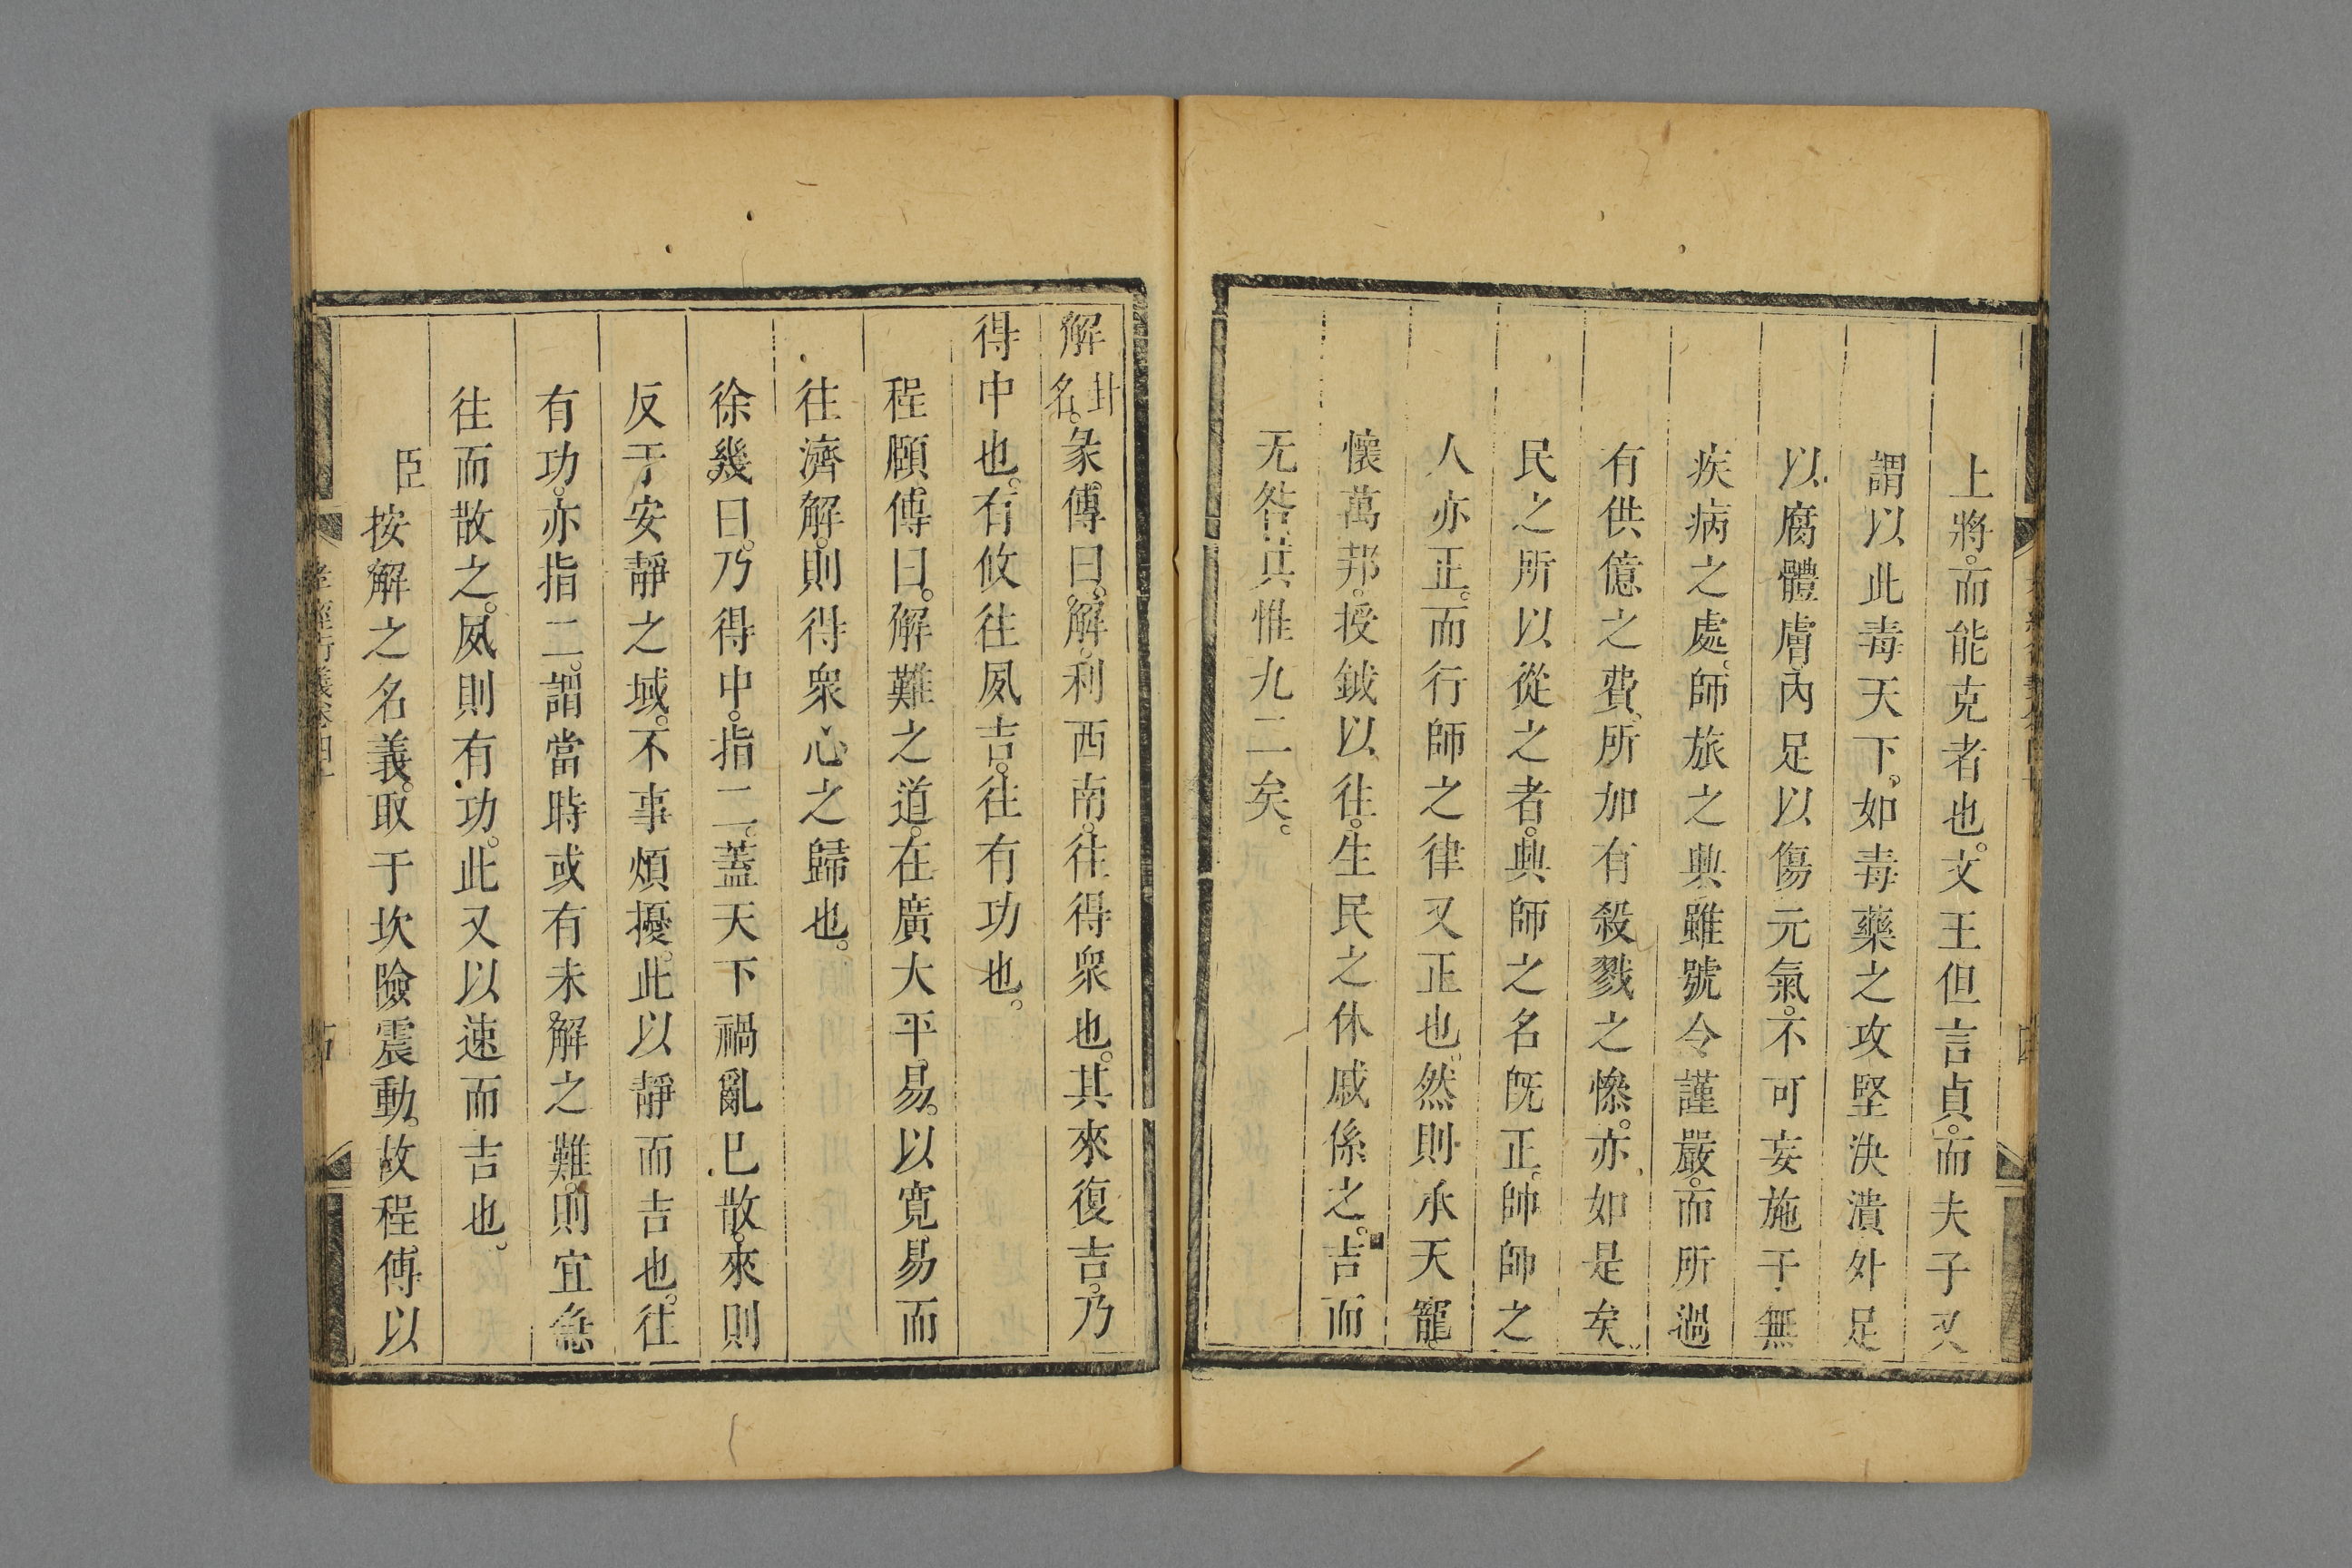 上將。而能克者也。文王但言貞。而夫子又
謂以此毒天下。如毒藥之攻堅決潰外足
以腐體膚內足以傷元氣。不可妄施于無
疾病之處。師旅之興雖號令謹嚴。而所過
有供億之費。所加有殺戮之慘。亦如是矣
民之所以從之者。興師之名旣正。帥師之
人亦正。而行師之律又正也。然則承天寵
懷萬邦。授鉞以往。生民之休戚係之。吉而
无咎其惟九二矣。
解卦名。彖傳曰。解。利西南。往得衆也。其來復吉。乃
得中也。有攸往夙吉。往有功也。
程頤傳曰。解難之道。在廣大平易。以寬易而
往濟解。則得衆心之歸也。
徐幾曰。乃得中。指二。蓋天下禍亂已散。來則
反于安靜之域。不事煩擾。此以靜而吉也。往
有功。亦指二。謂當時或有未解之難。則宜急
往而散之。夙則有功。此又以速而吉也。
臣按解之名義。取于坎險震動。故程傳以
孝經衍義卷四十